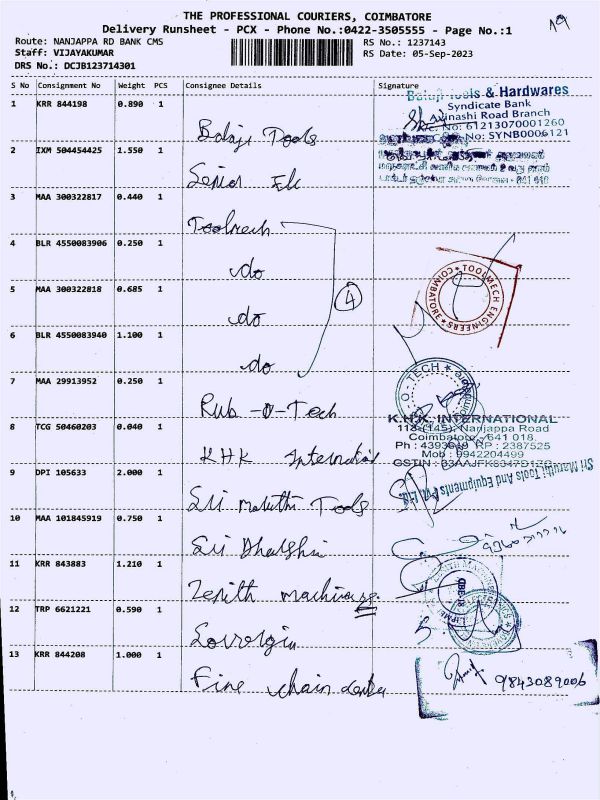 THE PROFESSIONAL COURIERS, COIMBATORE
Delivery Runsheet - PCX - Phone No.:0422-3505555 - Page No.:1
Route: NANJAPPA RD BANK CMS
RS No.: 1237143
Staff: VIJAYAKUMAR
RS Date: 05-Sep-2023
DRS No.: DCJB123714301
S No Consignment No Weight PCS Consignee Details Signature
1 KRR 844198 0.890 1 Balaji Tools
Balaji Tools & Hardwares
Syndicate Bank
Avinashi Road Branch
No: 61213070001260
No: SYNB0006121
2 IXM 504454425 1.550 1
3 MAA 300322817 0.440 1 Toolmech
4 BLR 4550083906 0.250 1 do
5 MAA 300322818 0.685 1 do
4
TOOLMECH ENGINEERS
COIMBATORE
6 BLR 4550083940 1.100 1 do
7 MAA 29913952 0.250 1 Rub-O-Tech
O-TECH
8 TCG 50460203 0.040 1 KHK International
K.H.K. INTERNATIONAL
118-(145), Nanjappa Road
Coimbatore - 641 018.
RP : 2387525
Mob : 9942204499
9 DPI 105633 2.000 1 Sri Maruthi Tools
Sri Maruthi Tools And Equipments Pvt. Ltd
10 MAA 101845919 0.750 1 Sri
11 KRR 843883 1.210 1 Zenith
12 TRP 6621221 0.590 1
13 KRR 844208 1.000 1 Fine chain
9843089006